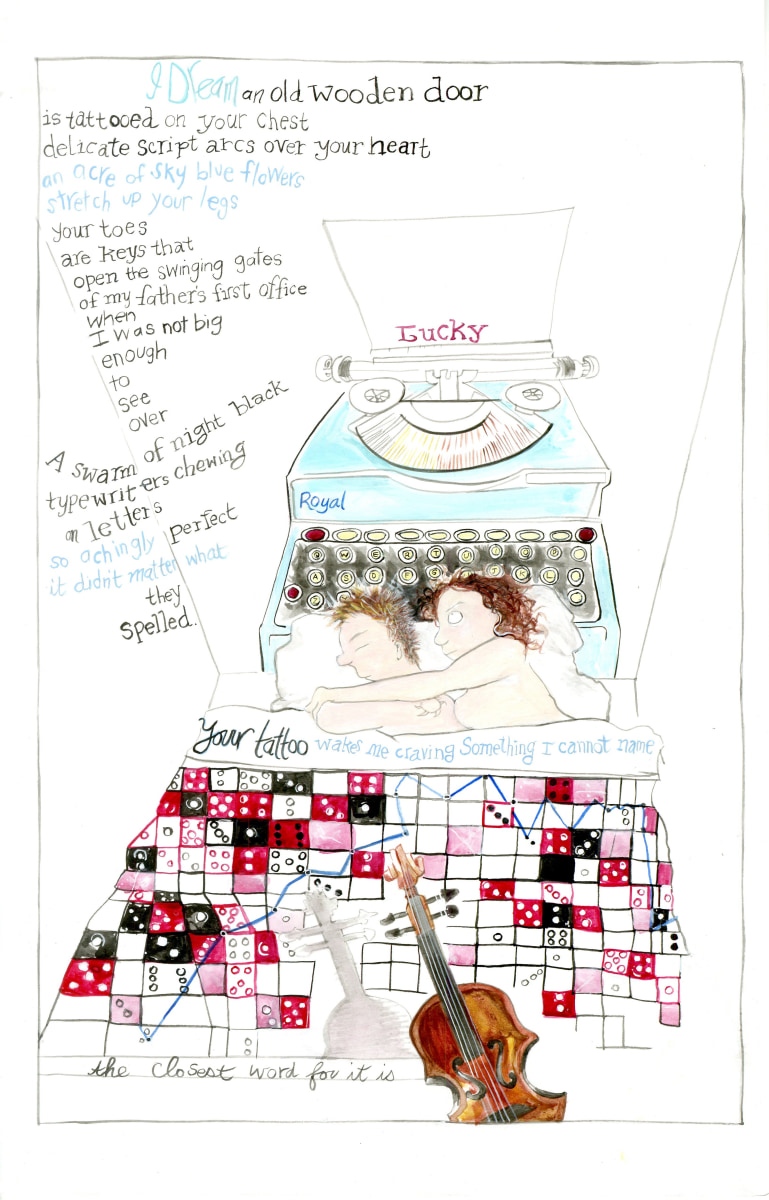 I Dream an old wooden door
is tattooed on your chest
delicate script arcs over your heart
an acre of sky blue flowers
stretch up your legs
your toes
are keys that
open the swinging gates
of my father's first office
when
I was not big
enough
to
see
over
A swarm of night black
typewriters chewing
on letters
so achingly perfect
it didn't matter what
they
spelled.
Lucky
Royal
Your tattoo wakes me craving Something I cannot name
the closest word for it is